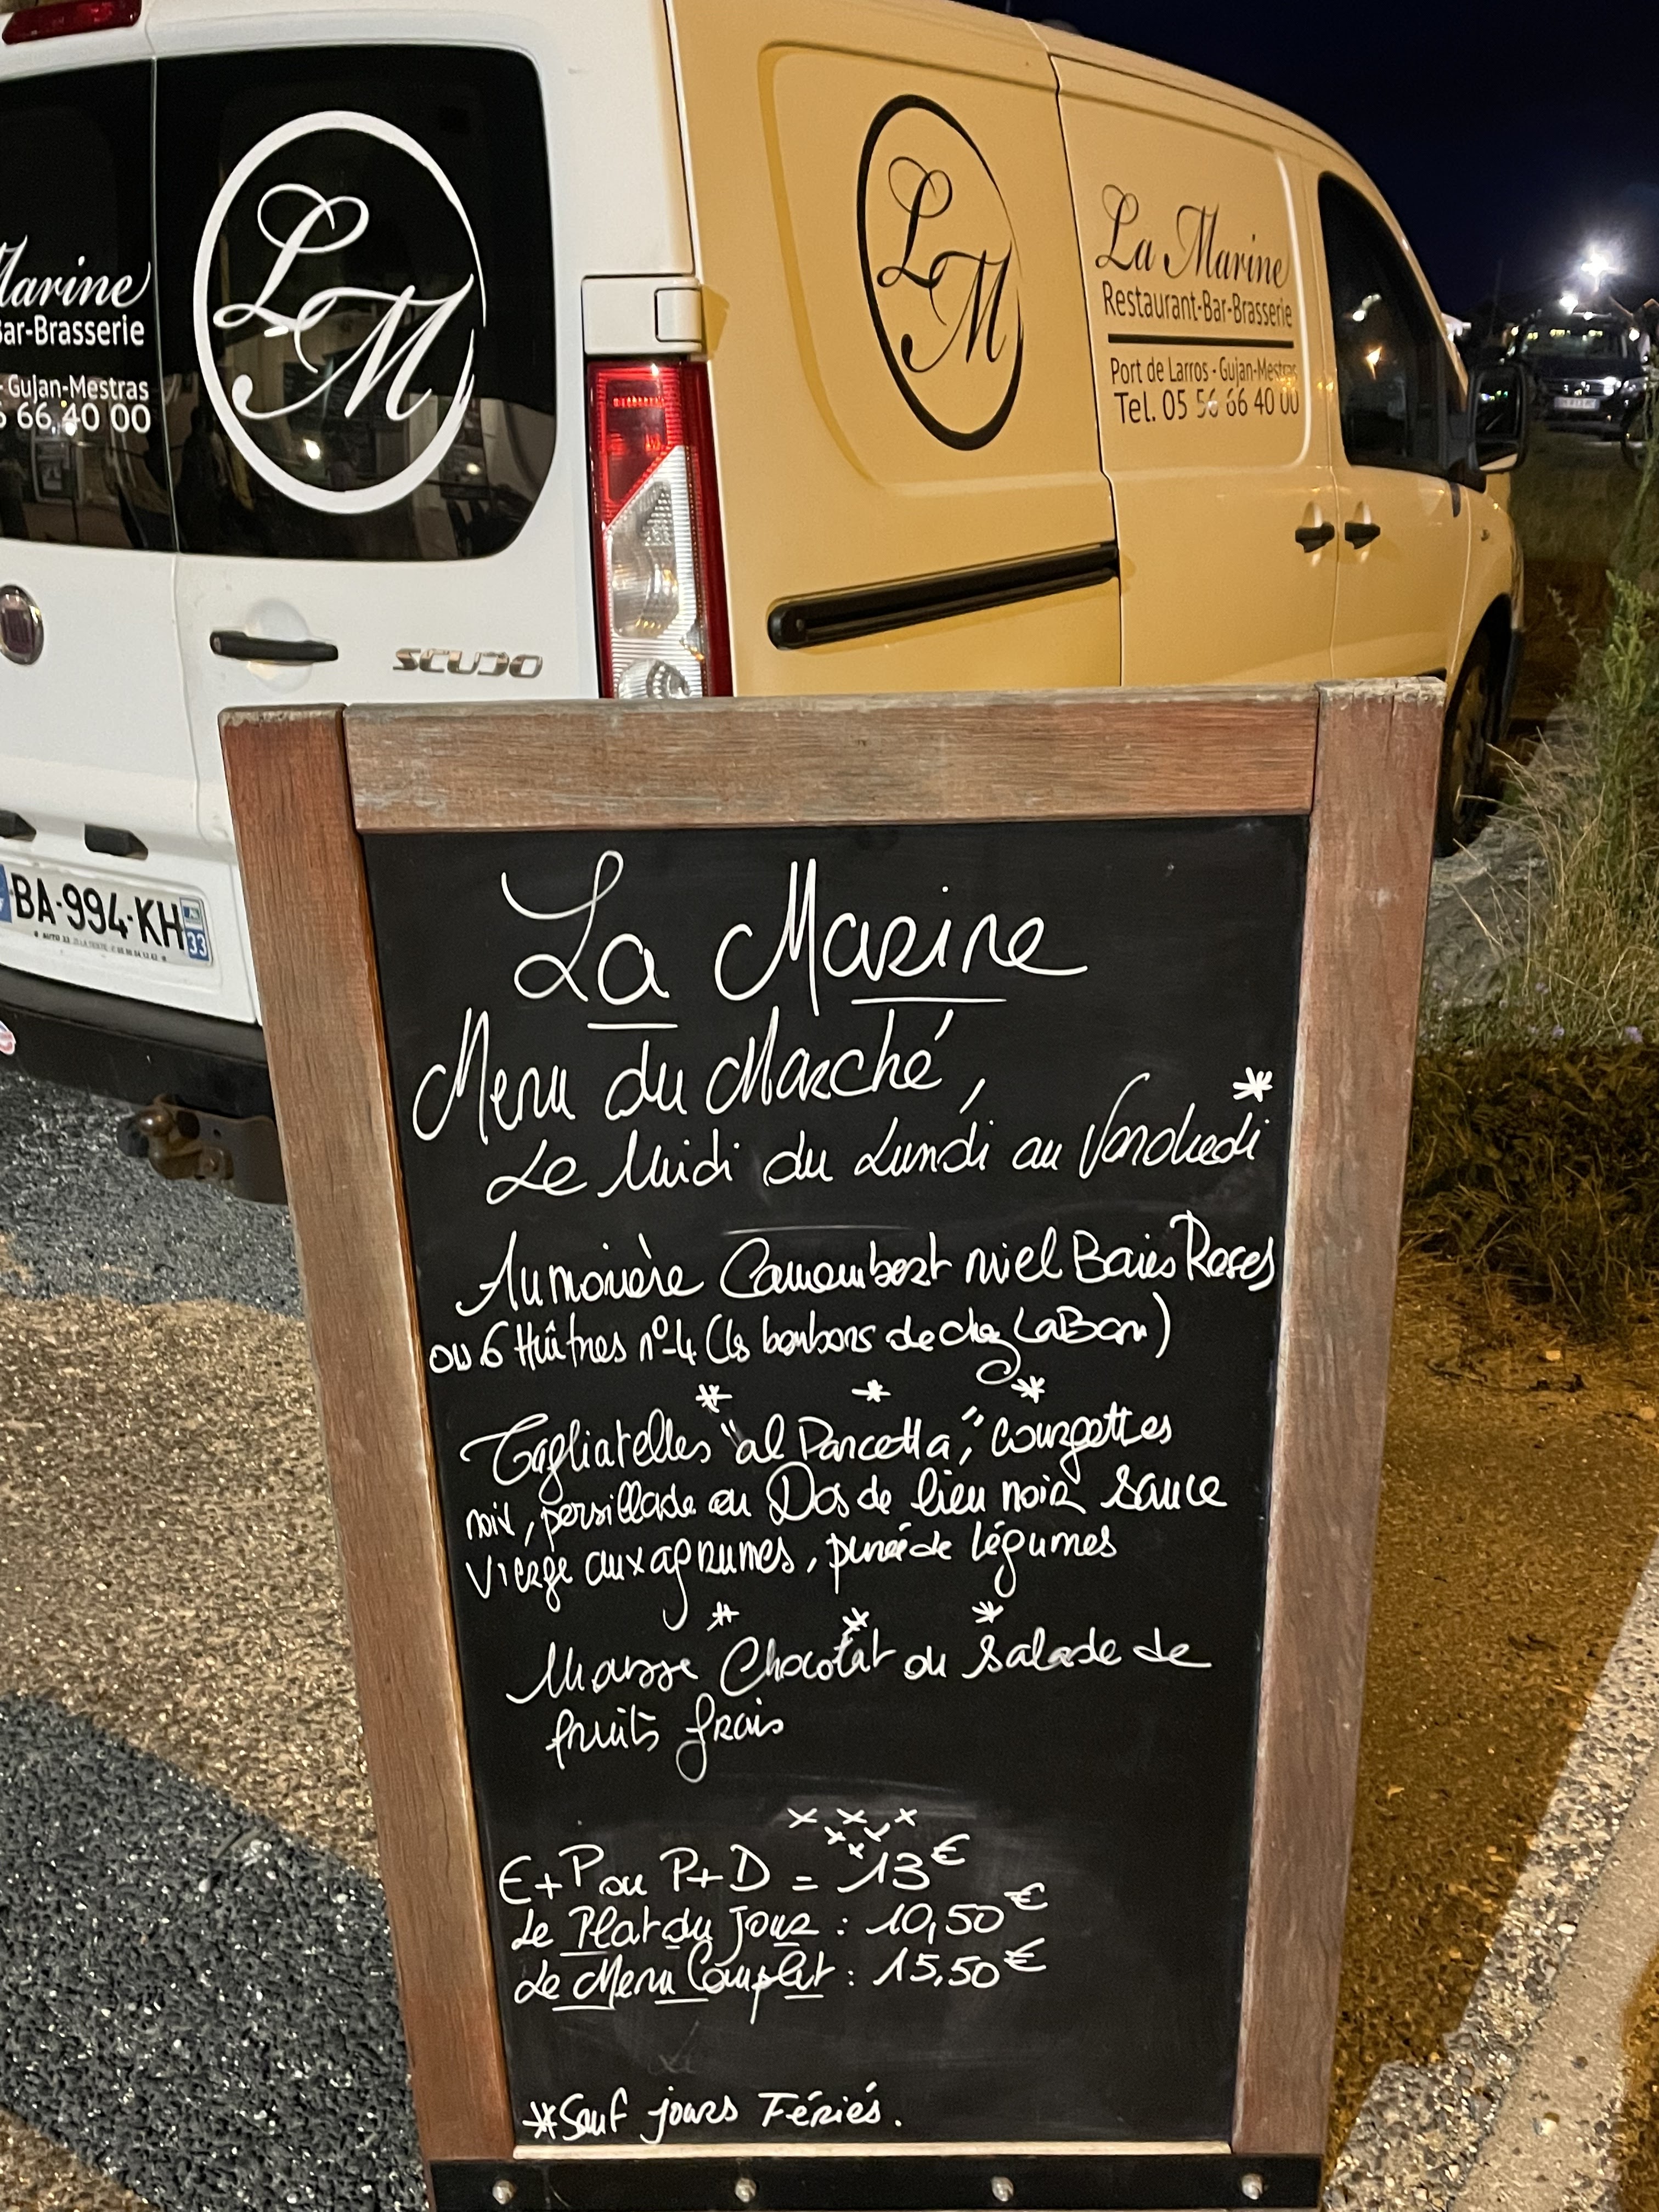 Marine
Bar-Brasserie
- Gujan-Mestras
66 40 00
LM
SCUDO
BA-994-KH
33
LM
La Marine
Restaurant-Bar-Brasserie
Port de Larros - Gujan-Mestras
Tel. 05 56 66 40 00
La Marine
Menu du Marché,
Le Midi du Lundi au Vendredi *
Aumonière Camembert miel Baies Roses
ou 6 Huîtres n°4 (les bonbons de chez LaBan)
* * *
Tagliatelles "al Pancetta," courgettes
noir, persillade ou Dos de lieu noir sauce
vierge aux agrumes, purée de légumes
* * *
Mousse Chocolat ou Salade de
fruits frais
E+P ou P+D = 13€
Le Plat du Jour : 10,50€
Le Menu Complet : 15,50€
*Sauf jours Fériés.